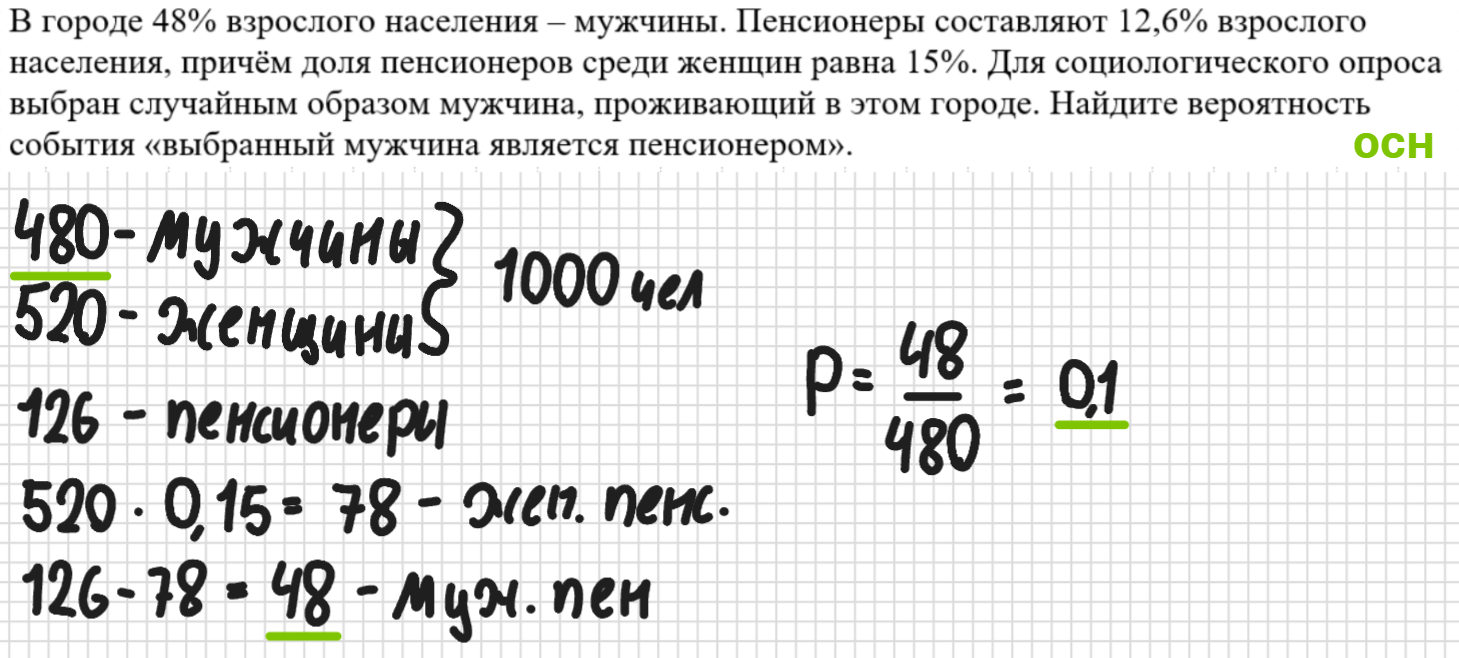 В городе 48% взрослого населения – мужчины. Пенсионеры составляют 12,6% взрослого
населения, причём доля пенсионеров среди женщин равна 15%. Для социологического опроса
выбран случайным образом мужчина, проживающий в этом городе. Найдите вероятность
события «выбранный мужчина является пенсионером».
осн
480 - мужчины
520 - женщины
1000 чел
126 - пенсионеры
520 · 0,15 = 78 - жен. пенс.
126 - 78 = 48 - муж. пен
P = 48/480 = 0,1